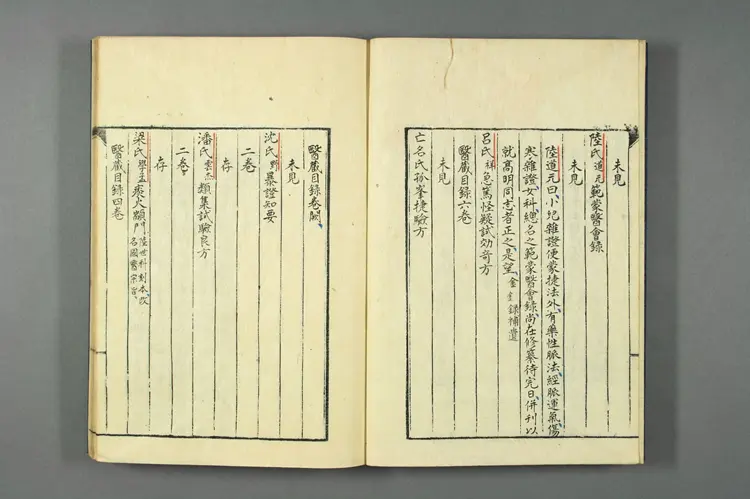 未見
陸氏道元範蒙醫會錄
未見
陸道元曰小兒雜證便蒙捷法外有藥性脈法經脈運氣傷
寒雜證女科總名之範蒙醫會錄尚在修纂待完日併刊以
就高明同志者正之是望金鎞錄補遺
呂氏急篤怪疑試効奇方
醫藏目錄六卷
未見
亡名氏孫峯捷驗方
醫藏目錄卷闕
未見
沈氏野暴證知要
二卷
存
潘氏雲杰類集試驗良方
二卷
存
梁氏學孟痰火顓門陸世科刻本改
名國醫宗旨
醫藏目錄四卷